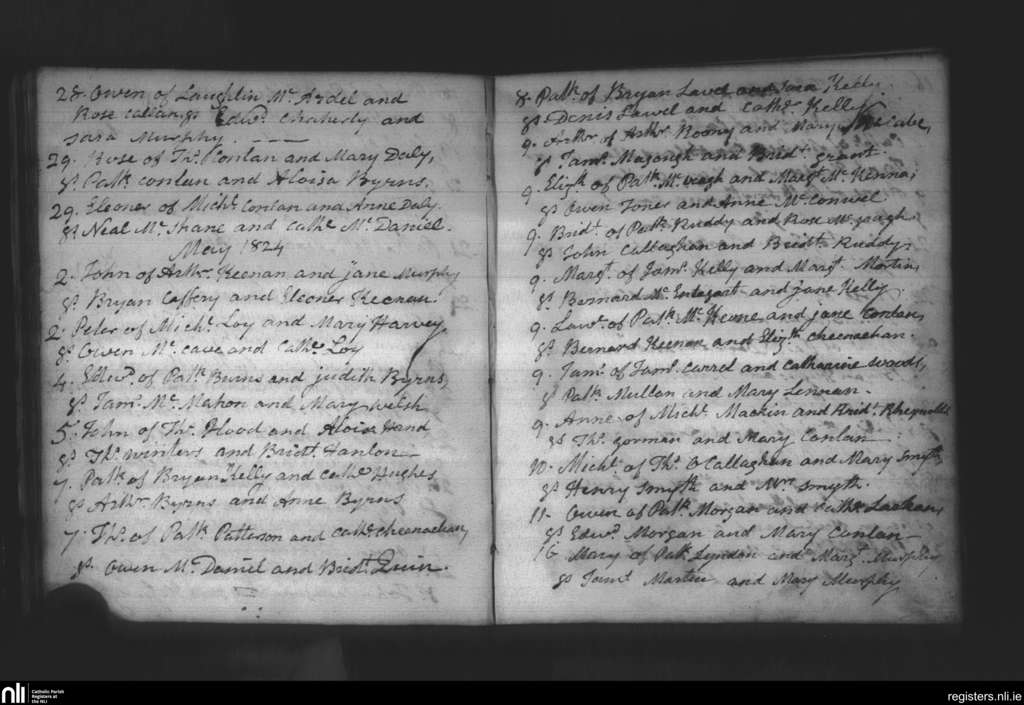 28. Owen of Laughlin Mc. Ardel and
Rose Edwd. and
Sara Murphy.
29. Rose of Ths. Conlan and Mary Daly,
gs. Patk. conlan and Aloisa Byrns.
29. Eleoner of Michl. Conlan and Anne Daly
gs. Neal Mc. Shane and Cathe. Mc. Daniel.
May 1824
2. John of Arthr. Keenan and jane Murphy
gs. Bryan Caffery and Eleoner Keenan
2. Peter of Michl. Loy and Mary Harvey,
gs. Owen Mc. cave and Cathe. Loy
4. Edwd. of Patk. Burns and judith Byrns,
gs. Jams. Mc. Mahon and Mary Welsh
5. John of Ths. Hood and Aloisa Hand
gs. Ths. winters and Bridt. Hanlon
7. Patk. of Bryan Kelly and Cathe. Hughes
gs. Arthr. Byrns and Anne Byrns
7. Ths. of Patk. Patterson and Cathe. cheenachan,
gs. Owen Mc. Daniel and Bridt. Quin.
8. Patk. of Bryan Lavel and Sara Kelly
gs. Denis Lavel and Cathe. Kelly
9. Arthr. of Arthr. Roony and Mary Mc Cabe,
gs. Jams. Magough and Bridt. grant.
9. Elizth. of Patk. Mc. veagh and Margt. Mc. Kenna,
gs. Owen Jones and Anne Mc. Conwel
9. Bridt. of Patk. Ruddy and Rose Mc. gaugh
gs. John Callaghan and Bridt. Ruddy.
9. Margt. of Jams. Kelly and Margt. Martin,
gs. Bernard Mc. Entagart and jane Kelly.
9. Lawr. of Patk. Mc. Keone and jane Conlan,
gs. Bernard Keenan and Elizth. cheenachan.
9. Jams. of Jams. Carrol and Catharine woods,
gs. Patk. Mullan and Mary Lennan.
9. Anne of Michl. Mackin and Bridt.
gs. Ths. gorman and Mary Conlan
10. Michl. of Ths. O Callaghan and Mary Smyth
gs. Henry Smyth and Mrs. Smyth.
11. Owen of Patk. Morgan and Cathe.
gs. Edwd. Morgan and Mary Conlan
16 Mary of Patk. Lyndon and Margt. Murphy
gs Jams. Martin and Mary Murphy
nli Catholic Parish
Registers at
the NLI
registers.nli.ie